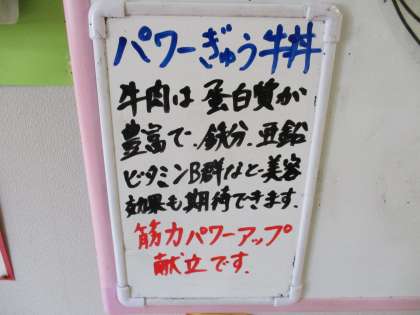 パワーぎゅう牛丼
牛肉は蛋白質が
豊富で、鉄分、亜鉛
ビタミンB群など美容
効果も期待できます。
筋力パワーアップ
献立です。